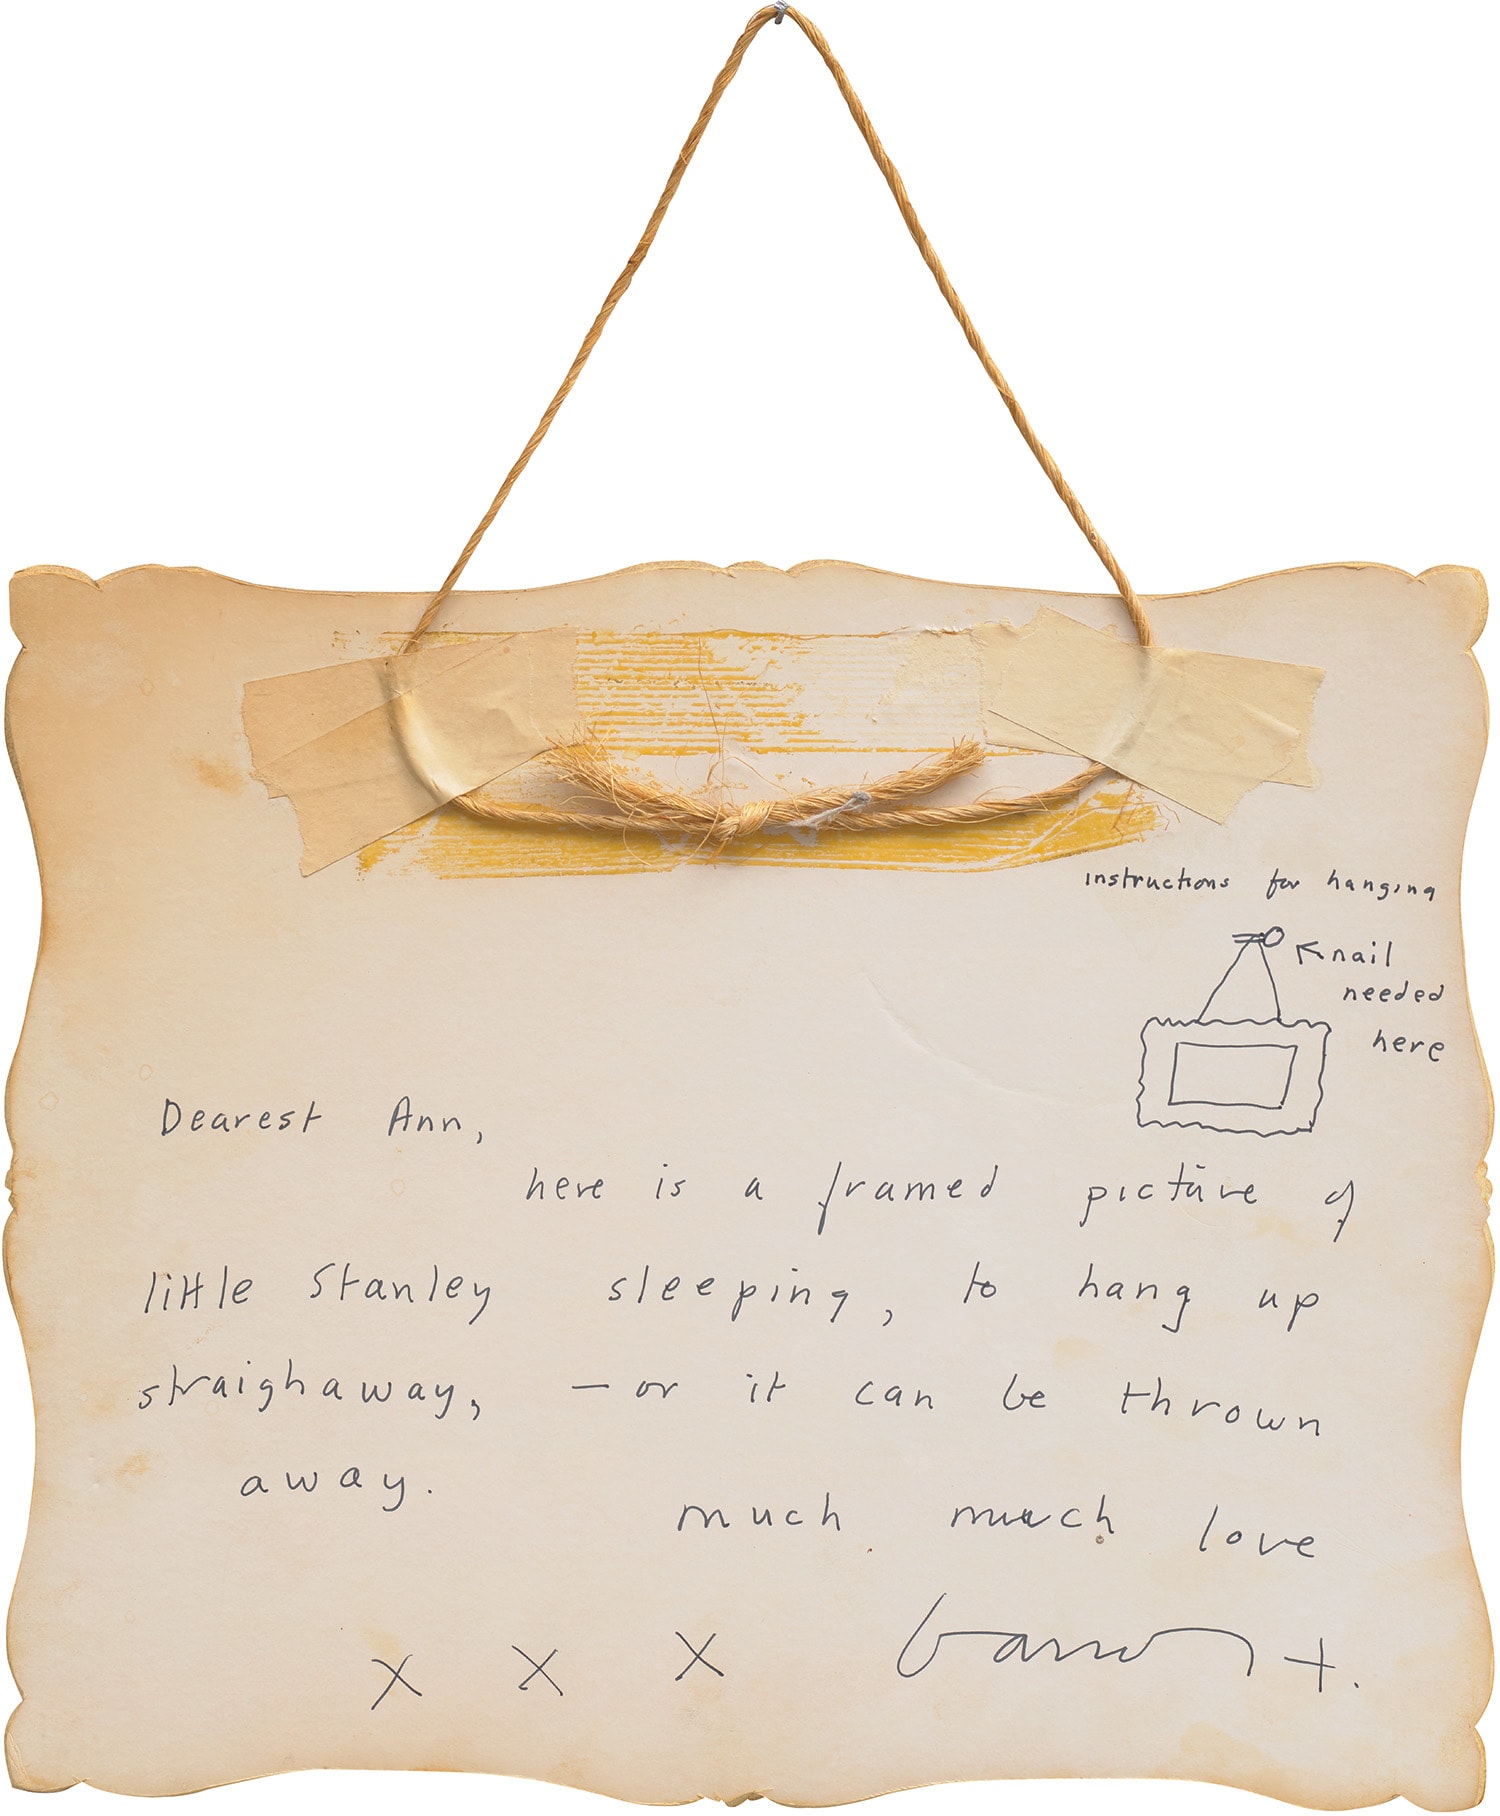 instructions for hanging
nail
needed
here
Dearest Ann,
here is a framed picture of
little Stanley sleeping, to hang up
straighaway, — or it can be thrown
away.
much much love
x x x +.